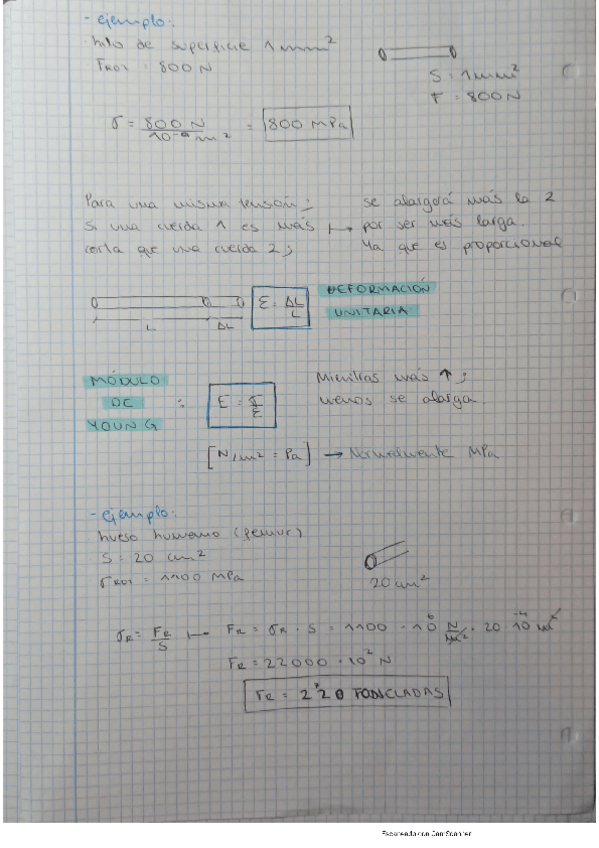 - ejemplo:
hilo de superficie 1mm²
FROT : 800 N
S : 1mm²
F : 800N
σ = 800 N / 10⁻⁶ m² = 800 MPa
Para una misma tensión;
Si una cuerda 1 es más
corta que una cuerda 2;
se alargará más la 2
por ser más larga.
Ya que es proporcional
L ΔL
ε = ΔL / L
DEFORMACIÓN
UNITARIA
MÓDULO
DE
YOUNG
: E = σ / ε
Mientras más ↑;
menos se alarga.
[N/m² = Pa] → Normalmente MPa
- ejemplo:
hueso humano (femur)
S : 20 cm²
σROT : 1100 MPa
20 cm²
σR = FR / S ↦ FR = σR · S = 1100 · 10⁶ N/m² · 20 · 10⁻⁴ m²
FR = 22000 · 10² N
FR = 2'20 TONELADAS
Escaneado con CamScanner